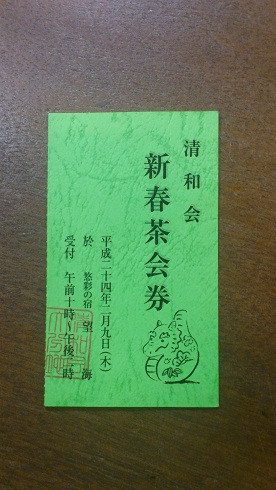 清和会
新春茶会券
平成二十四年二月九日(木)
於 悠彩の宿 望海
受付 午前十時～午後二時